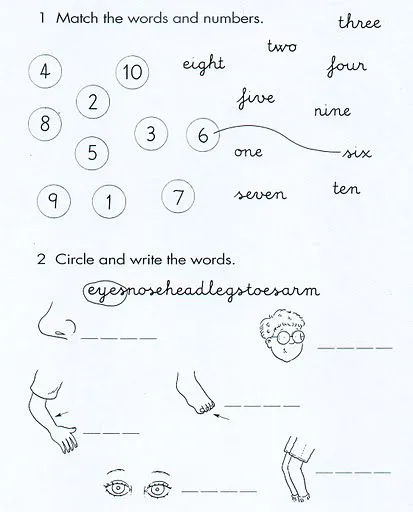 1 Match the words and numbers.
three
two
eight
four
4
10
2
five
nine
8
3
6
5
one
six
9
1
7
seven
ten
2 Circle and write the words.
eyesnoseheadlegstoesarm